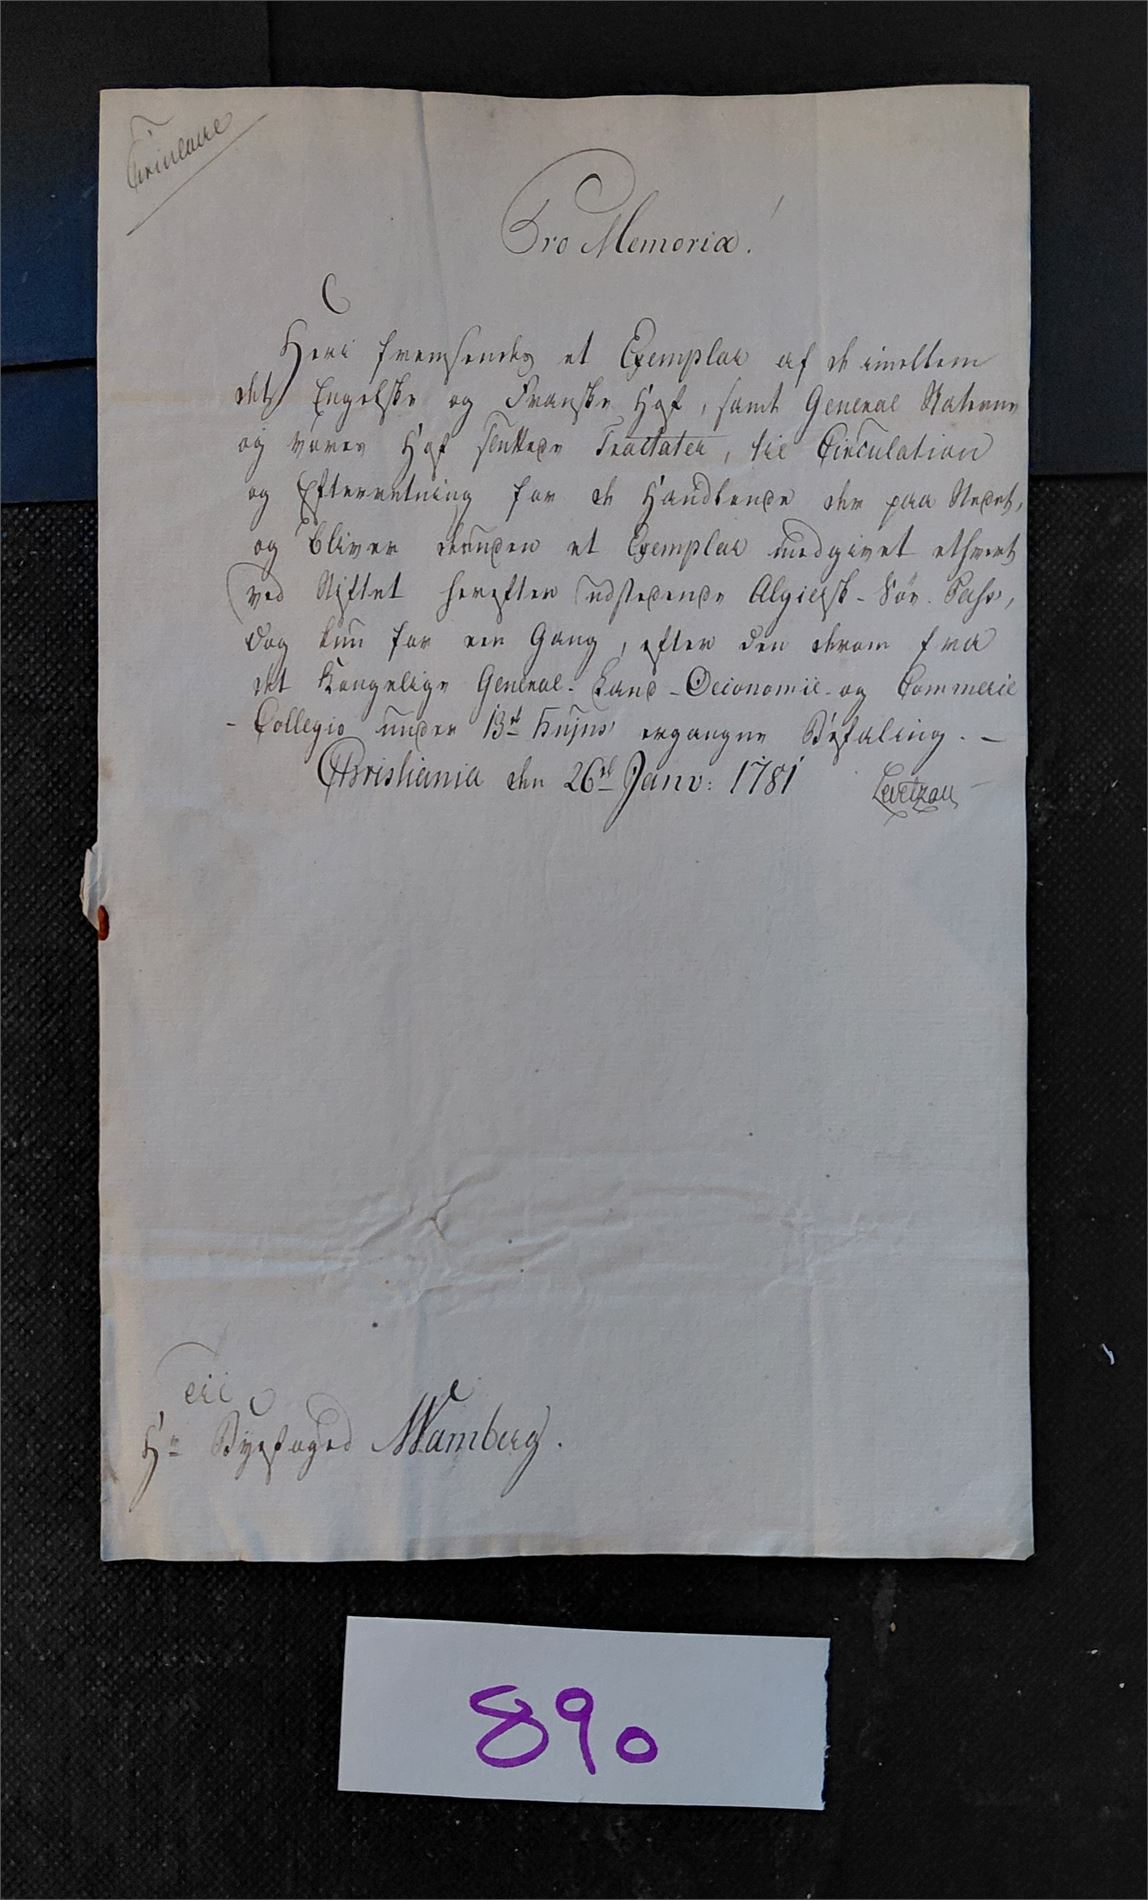 Circulaire
Pro Memoria!
Hervi fremsendes et Exemplar af de imellem
det Engelske og Franske Hof, samt General Staterne
og vores Hof sluttede Tractater, til Circulation
og Efterretning for de Handlende der paa Stedet,
og bliver desuden et Exemplar medgivet ethvert
ved Stiftet herefter udstedende Algiersk-Søe-Pass,
dog kun for een Gang, efter den derom fra
det Kongelige General-Land-Oeconomie- og Commerce
-Collegio under 13de hujus ergangne Befaling.-
Christiania den 26de Janv: 1781
Levetzau
Til
Hr Byefoged Wamberg.
890